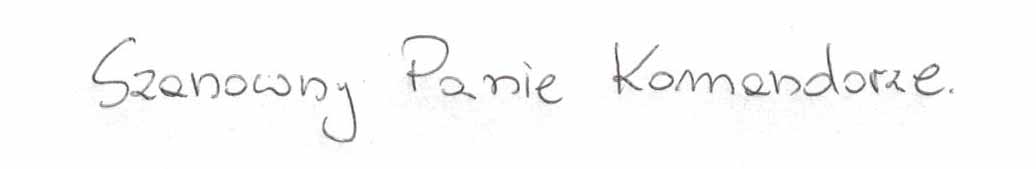 Szanowny Panie Komandorze.